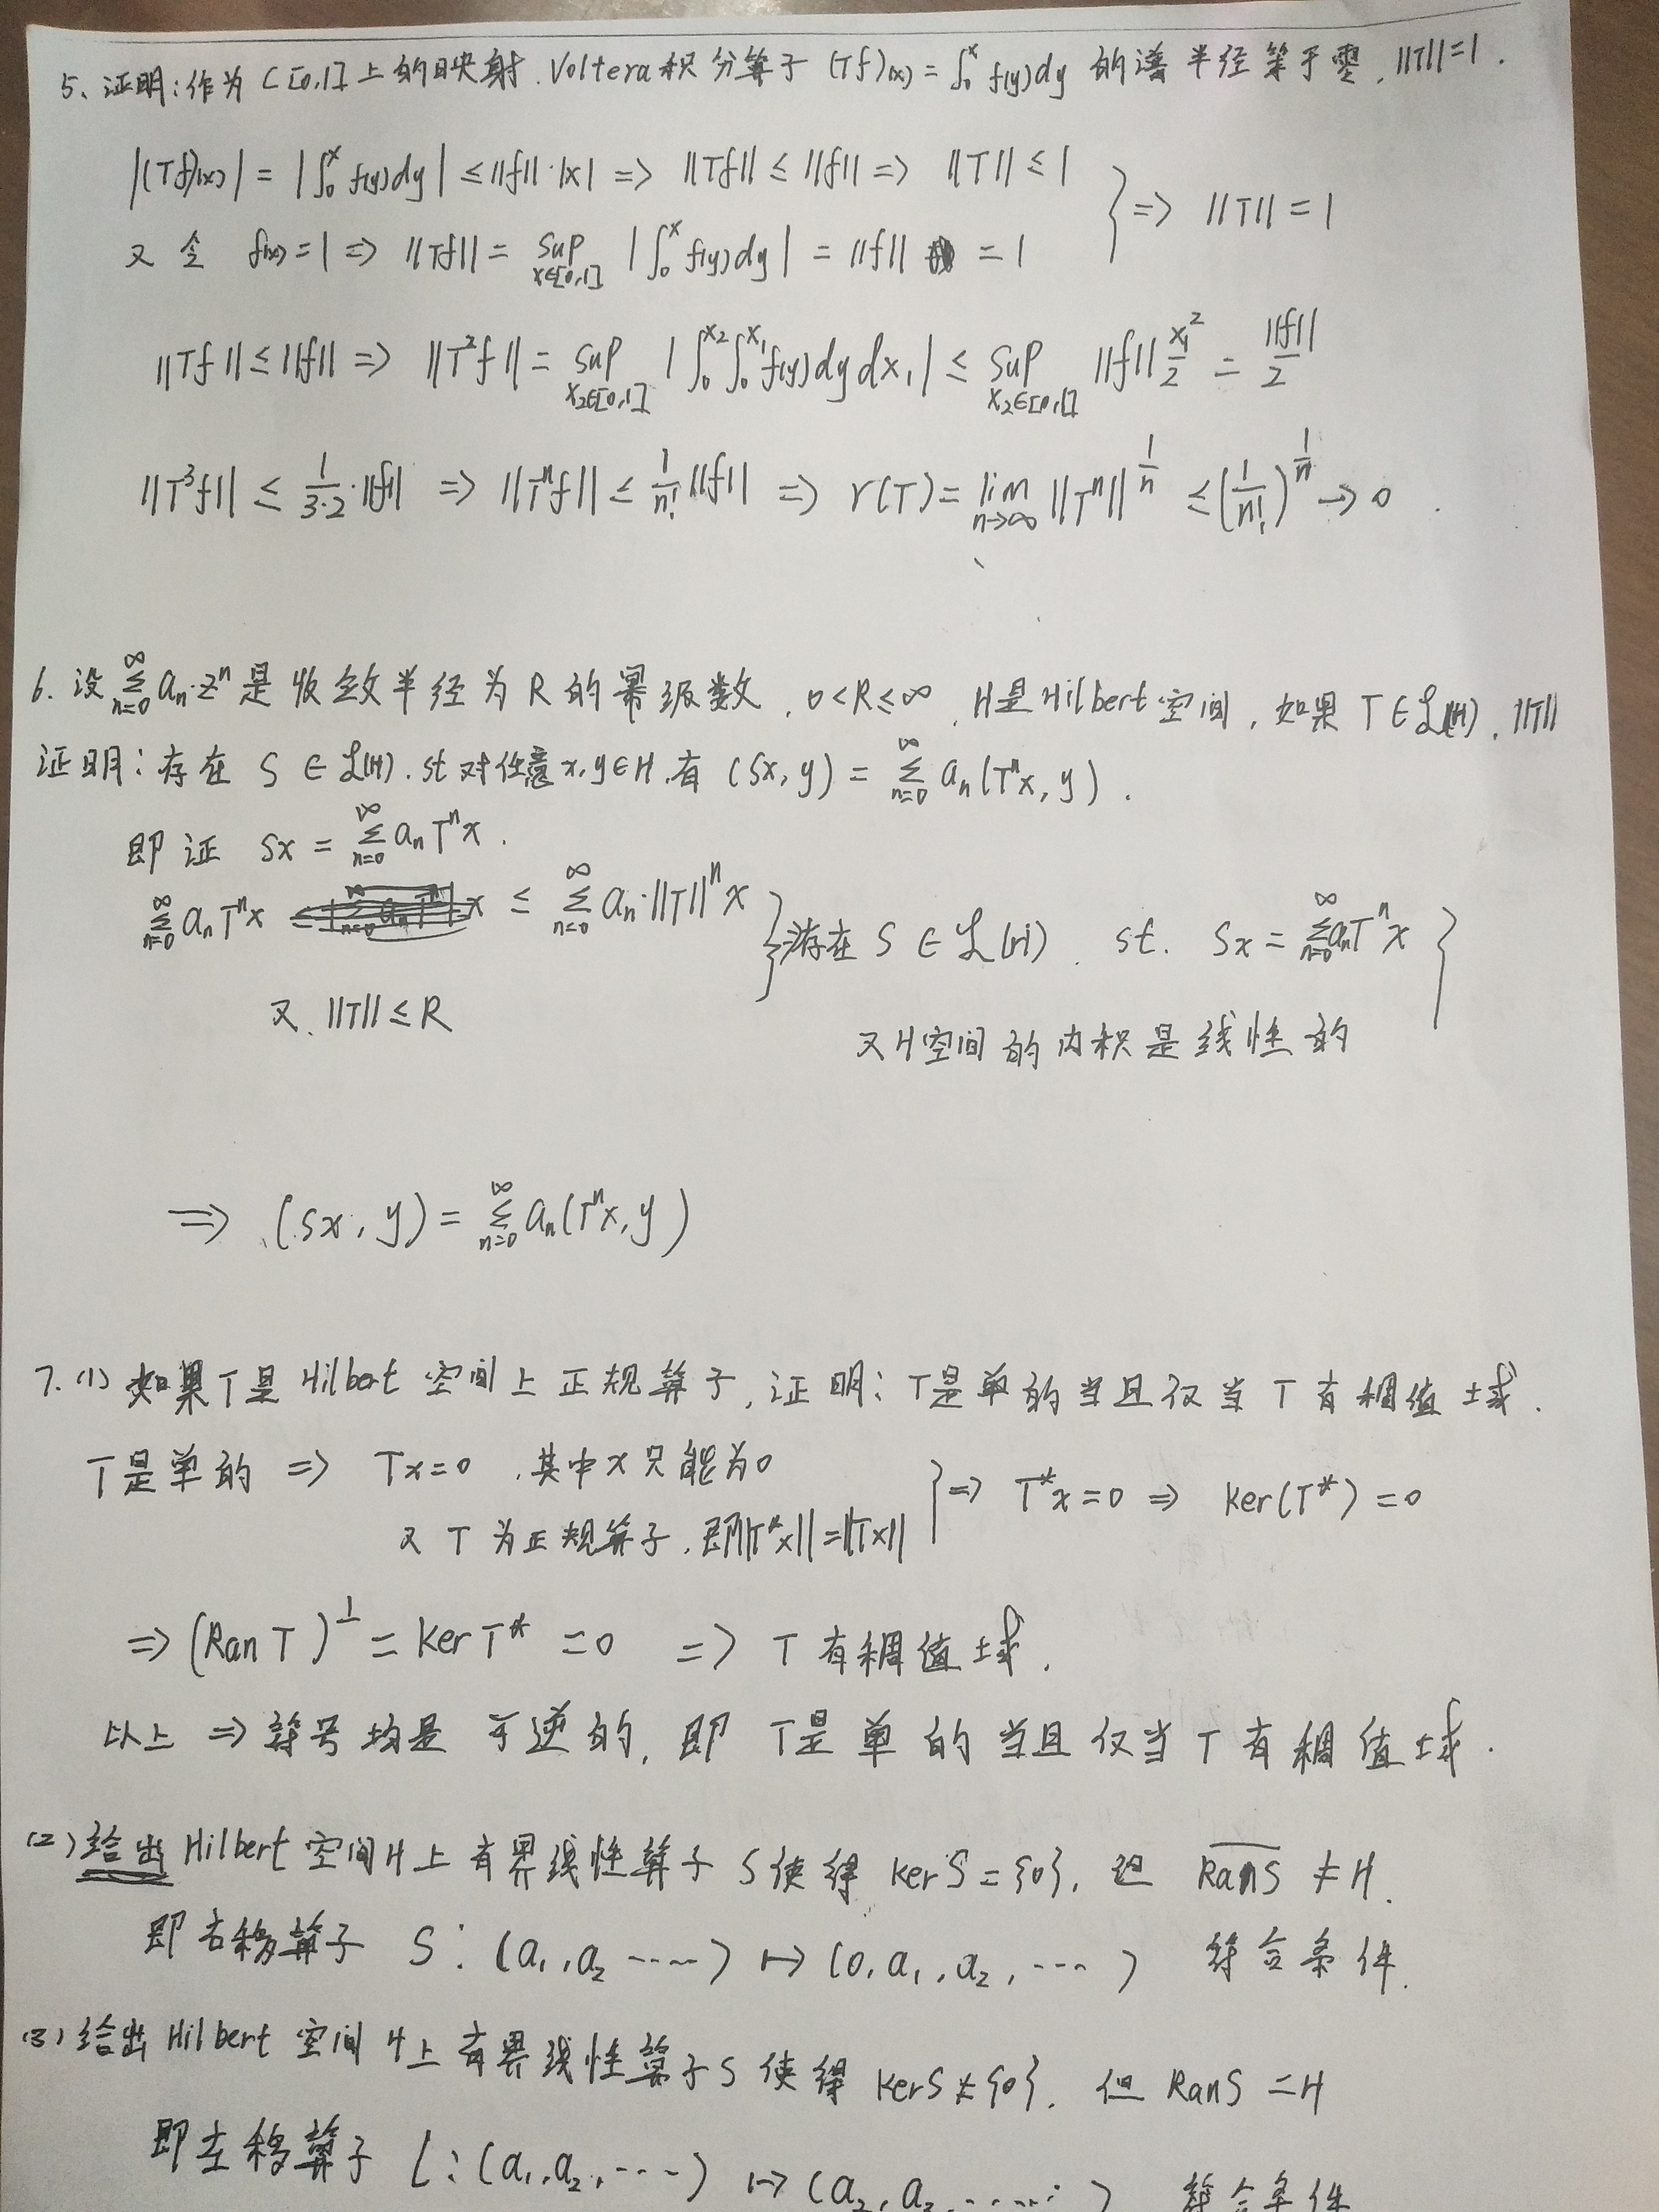 5、证明:作为 C[0,1]上的映射.Voltera积分算子 (Tf)(x) = ∫₀ˣ f(y)dy 的谱半径等于零, ||T||=1.
|(Tf)(x)| = |∫₀ˣ f(y)dy| ≤ ||f||·|x| => ||Tf|| ≤ ||f|| => ||T|| ≤ 1 } => ||T|| = 1
又令 f(x)=1 => ||Tf|| = sup_{x∈[0,1]} |∫₀ˣ f(y)dy| = ||f|| = 1
||Tf|| ≤ ||f|| => ||T²f|| = sup_{x₂∈[0,1]} |∫₀^{x₂}∫₀^{x₁} f(y)dydx₁| ≤ sup_{x₂∈[0,1]} ||f|| x₁²/2 = ||f||/2
||T³f|| ≤ 1/(3·2)·||f|| => ||Tⁿf|| ≤ 1/n! ||f|| => r(T) = lim_{n→∞} ||Tⁿ||^{1/n} ≤ (1/n!)^{1/n} → 0.
6. 设 Σ_{n=0}^∞ aₙ·zⁿ 是收敛半径为 R 的幂级数, 0<R≤∞, H是Hilbert空间, 如果 T∈ℒ(H), ||T||
证明:存在 S ∈ ℒ(H), st 对任意 x,y∈H,有 (Sx,y) = Σ_{n=0}^∞ aₙ(Tⁿx, y).
即证 Sx = Σ_{n=0}^∞ aₙTⁿx.
Σ_{n=0}^∞ aₙTⁿx ≤ Σ_{n=0}^∞ aₙ·||T||ⁿx } 存在 S ∈ ℒ(H), st. Sx = Σ_{n=0}^∞ aₙTⁿx }
又, ||T|| ≤ R
又H空间的内积是线性的
=> (Sx, y) = Σ_{n=0}^∞ aₙ(Tⁿx, y)
7.(1) 如果T是Hilbert 空间上正规算子,证明:T是单的当且仅当 T 有稠值域.
T是单的 => Tx=0 ,其中x只能为0 } => T*x=0 => Ker(T*) =0
又 T 为正规算子,即||T*x||=||Tx||
=> (Ran T)^⊥ = Ker T* =0 => T 有稠值域.
以上 => 符号均是可逆的, 即 T是单的当且仅当 T 有稠值域.
(2)给出Hilbert 空间H上有界线性算子 S使得 KerS={0}, 但 \overline{RanS} ≠ H.
即右移算子 S: (a₁,a₂ ······) ↦ (0,a₁,a₂,···) 符合条件.
(3)给出Hilbert 空间 H上有界线性算子S 使得 KerS≠{0}, 但 RanS =H
即左移算子 L:(a₁,a₂,····) ↦ (a₂,a₃,······) 符合条件